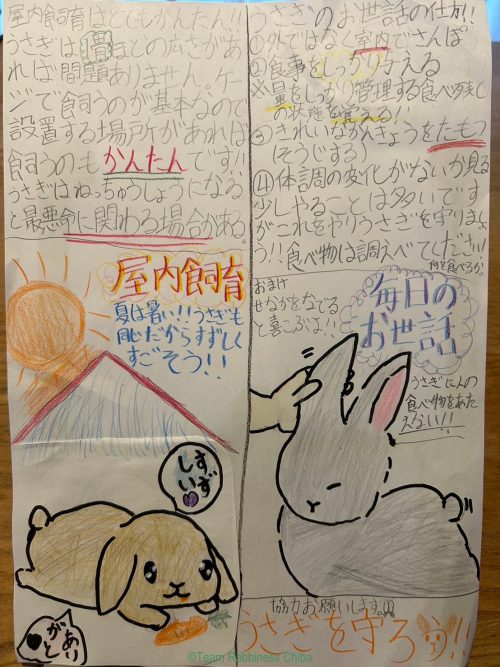 屋内飼育はとてもかんたん!!
うさぎは1畳ほどの広さがあ
れば問題ありません。ケー
ジで飼うのが基本なので
設置する場所があれば
飼うのもかんたんです!!
うさぎはねっちゅうしょうになる
と最悪命に関わる場合がある。
屋内飼育
夏は暑い!!うさぎも
同じだからすずしく
すごそう!!
すず
しい
あり
がと
うさぎのお世話の仕方!!
①外ではなく室内でさんぽ
②食事をしっかり与える
※量をしっかり管理する食べ残し
の状態を覚える!!
③きれいなかんきょうをたもつ
(そうじする)
④体調の変化がないか見る
少しやることは多いです
がこれをやりうさぎを守りましょ
う!!食べ物は調えべてください!
何を食べるか
おまけ
せなかをなでる
と喜こぶよ!!
毎日の
お世話
うさぎに人の
食べ物をあた
えない!!
協力お願いします。
うさぎを守ろう!!
©Team Rabbiness Chiba